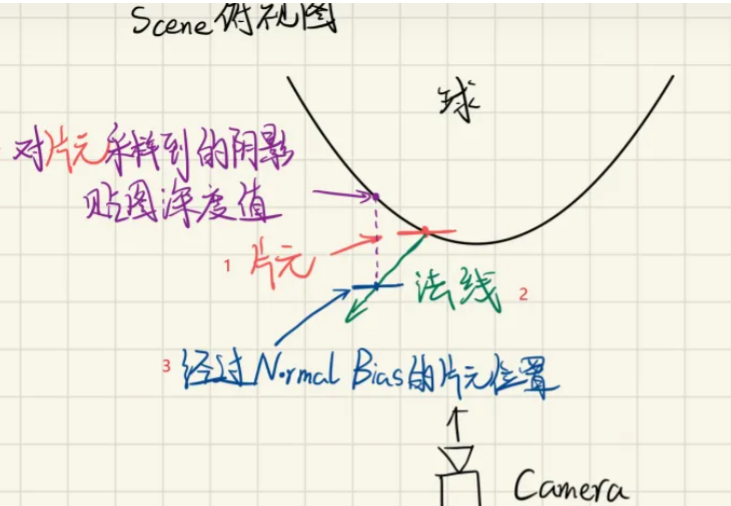 Scene俯视图
球
对片元采样到的阴影
贴图深度值
1 片元
法线 2
3 经过Normal Bias的片元位置
Camera